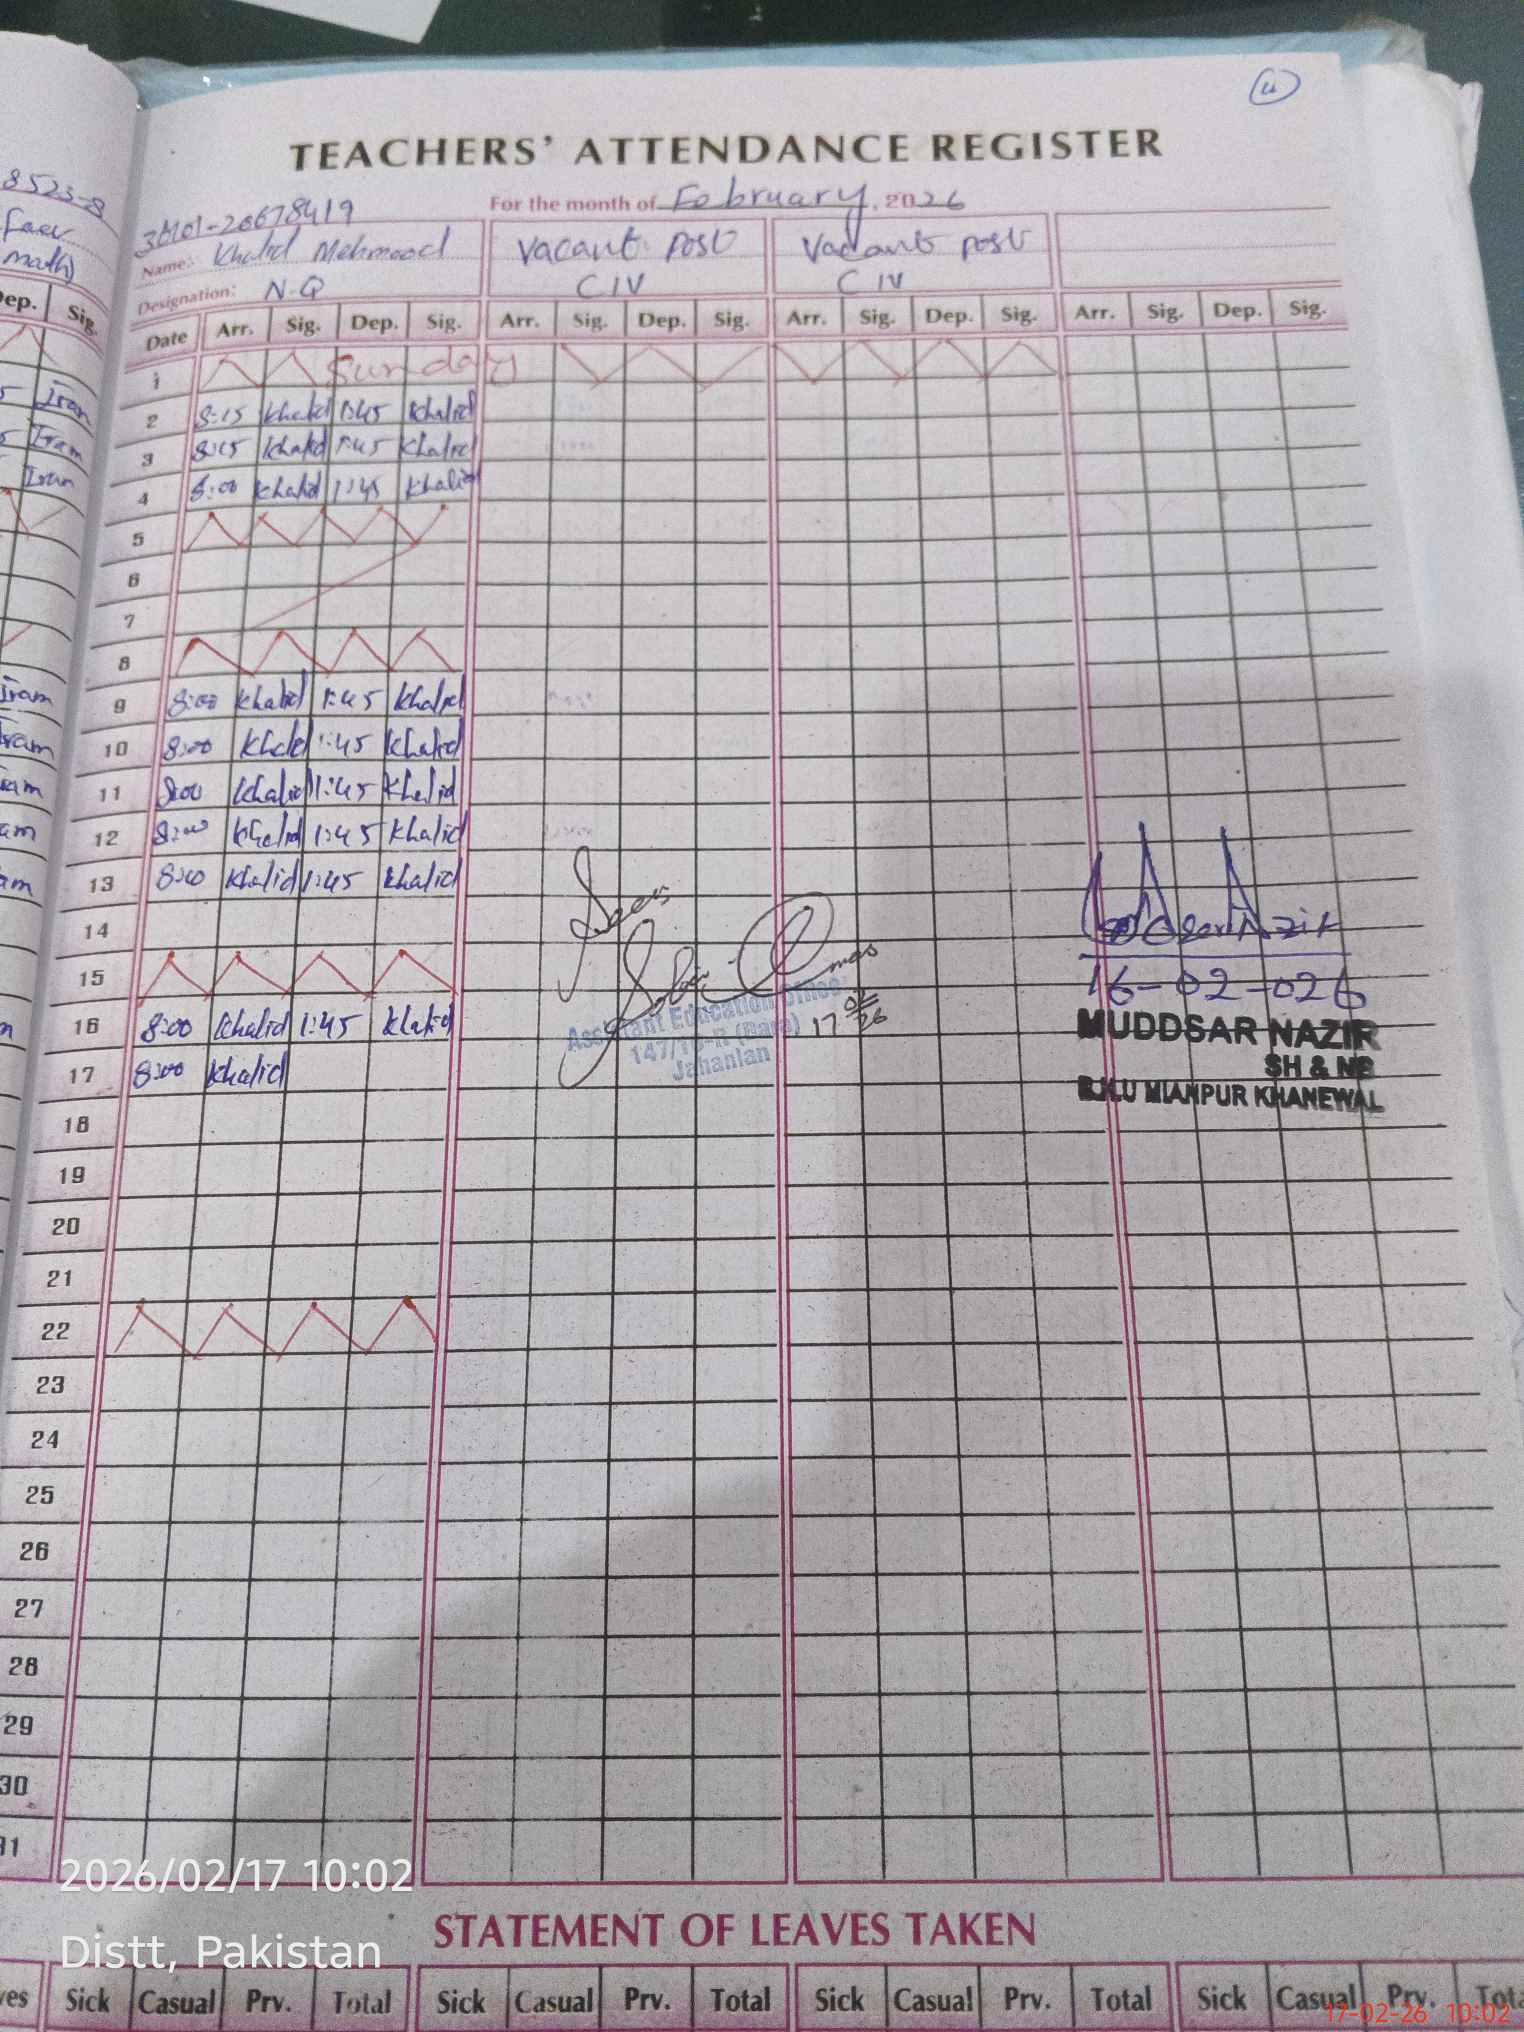 TEACHERS' ATTENDANCE REGISTER
For the month of February, 2026
Name: Khalid Mehmood
Designation: N.Q
Vacant Post
CIV
Vacant post
CIV
Date Arr. Sig. Dep. Sig. Arr. Sig. Dep. Sig. Arr. Sig. Dep. Sig. Arr. Sig. Dep. Sig.
1 Sunday
2 8:15 Khalid 1:45 Khalid
3 8:15 Khalid 1:45 Khalid
4 8:00 Khalid 1:45 Khalid
5
6
7
8
9 8:00 Khalid 1:45 Khalid
10 8:00 Khalid 1:45 Khalid
11 8:00 Khalid 1:45 Khalid
12 8:00 Khalid 1:45 Khalid
13 8:00 Khalid 1:45 Khalid
14
15
16 8:00 Khalid 1:45 Khalid
17 8:00 Khalid
18
19
20
21
22
23
24
25
26
27
28
29
30
31
Assistant Education Officer
Jahanian
17 02 26
16-02-026
MUDDSAR NAZIR
SH & NS
B.H.U MIANPUR KHANEWAL
8523-8
math)
Dep. Sig.
Iram
Iram
Iram
Iram
Iram
2026/02/17 10:02
Distt, Pakistan
STATEMENT OF LEAVES TAKEN
Sick Casual Prv. Total Sick Casual Prv. Total Sick Casual Prv. Total Sick Casual Prv.
17-02-26 10:02